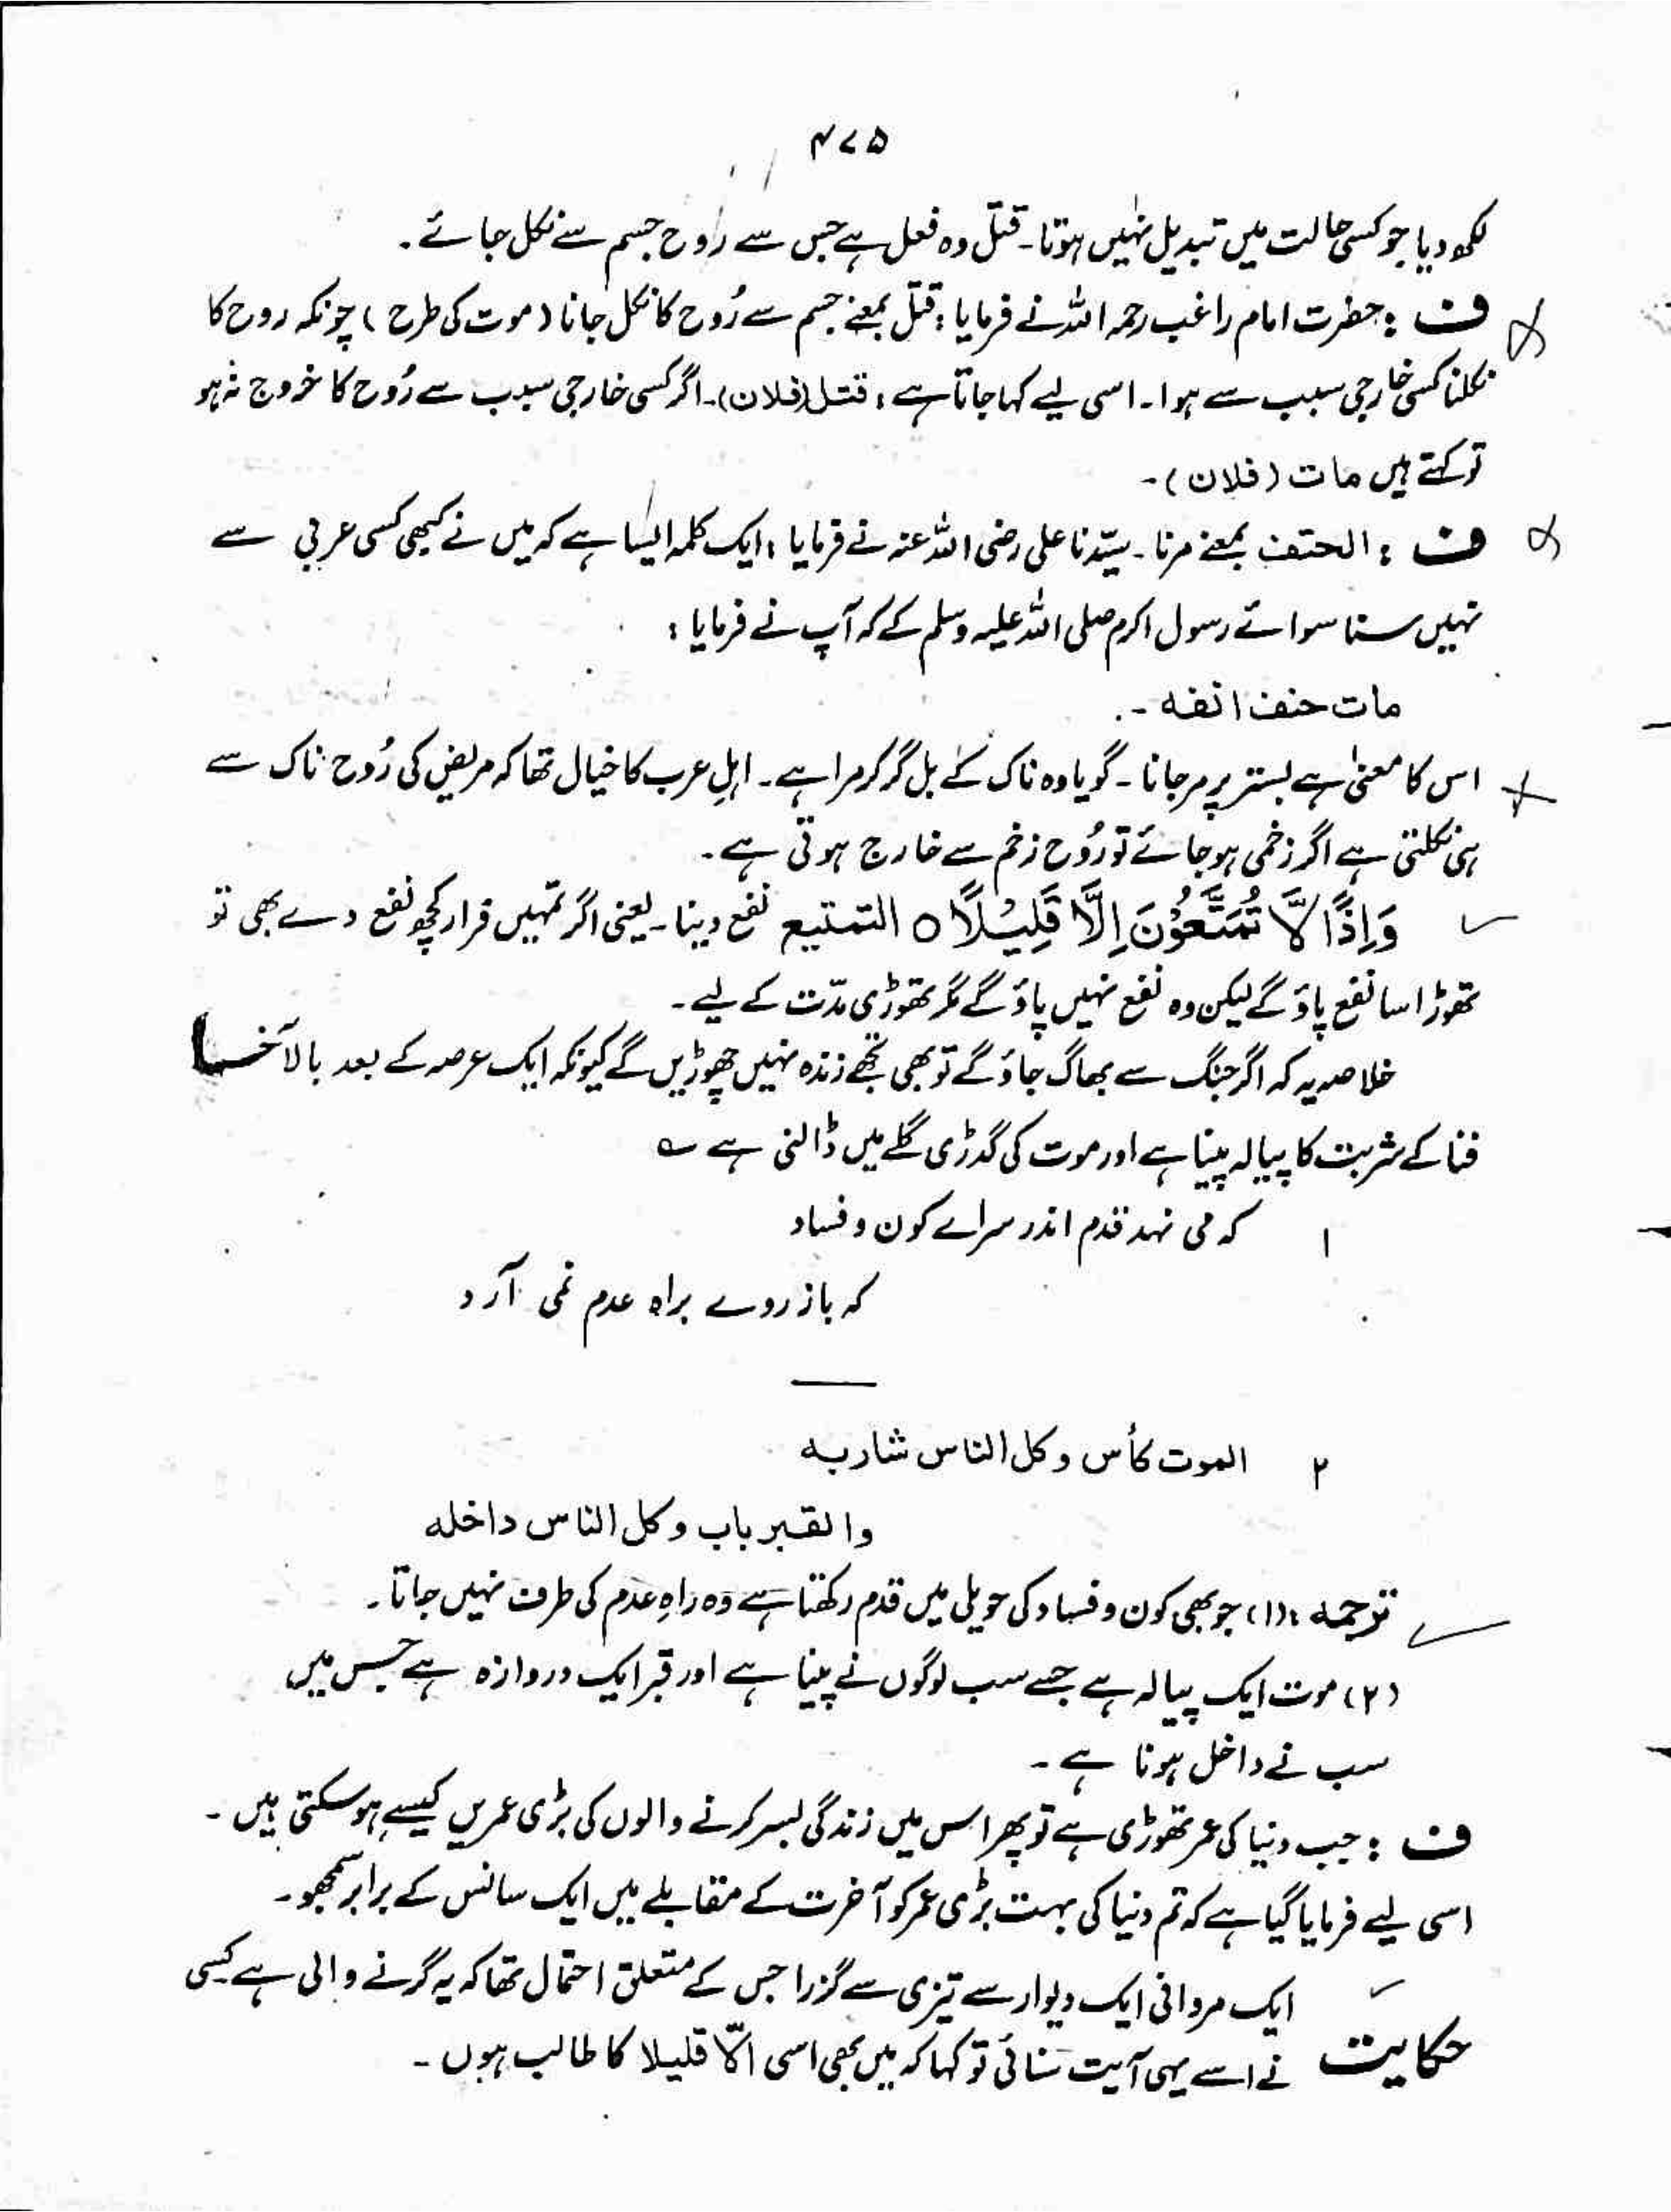 ۴۷۵
لکھ دیا جو کسی حالت میں تبدیل نہیں ہوتا۔ قتل وہ فعل ہے جس سے روح جسم سے نکل جائے۔
ف : حضرت امام راغب رحمہ اللہ نے فرمایا : قتل بمعنے جسم سے رُوح کا نکل جانا (موت کی طرح) چونکہ روح کا
نکلنا کسی خارجی سبب سے ہوا۔ اسی لیے کہا جاتا ہے : قتل (فلان)۔ اگر کسی خارجی سبب سے رُوح کا خروج نہ ہو
تو کہتے ہیں مات (فلان)۔
ف : الحتف بمعنے مرنا۔ سیّدنا علی رضی اللہ عنہ نے فرمایا : ایک کلمہ ایسا ہے کہ میں نے کبھی کسی عربی سے
نہیں سنا سوائے رسول اکرم صلی اللہ علیہ وسلم کے کہ آپ نے فرمایا :
مات حتف انفه ۔
اس کا معنیٰ ہے بستر پر مر جانا۔ گویا وہ ناک کے بل گر کر مرا ہے۔ اہلِ عرب کا خیال تھا کہ مریض کی رُوح ناک سے
ہی نکلتی ہے اگر زخمی ہو جائے تو رُوح زخم سے خارج ہوتی ہے۔
وَاِذًا لَّا تُمَتَّعُوْنَ اِلَّا قَلِیْلًا ○ التمتیع نفع دینا۔ یعنی اگر تمہیں فرار کچھ نفع دے بھی تو
تھوڑا سا نفع پاؤ گے لیکن وہ نفع نہیں پاؤ گے مگر تھوڑی مدّت کے لیے۔
خلاصہ یہ کہ اگر جنگ سے بھاگ جاؤ گے تو بھی تجھے زندہ نہیں چھوڑیں گے کیونکہ ایک عرصہ کے بعد بالآخر
فنا کے شربت کا پیالہ پینا ہے اور موت کی گدڑی گلے میں ڈالنی ہے ؎
۱ کہ می نہد قدم اندر سراے کون و فساد
کہ باز روے براہِ عدم نمی آرد
۲ الموت كأس وكل الناس شاربه
والقبر باب وكل الناس داخله
ترجمہ : (۱) جو بھی کون و فساد کی حویلی میں قدم رکھتا ہے وہ راہِ عدم کی طرف نہیں جاتا۔
(۲) موت ایک پیالہ ہے جسے سب لوگوں نے پینا ہے اور قبر ایک دروازہ ہے جس میں
سب نے داخل ہونا ہے۔
ف : جب دنیا کی عمر تھوڑی ہے تو پھر اس میں زندگی بسر کرنے والوں کی بڑی عمریں کیسے ہو سکتی ہیں۔
اسی لیے فرمایا گیا ہے کہ تم دنیا کی بہت بڑی عمر کو آخرت کے مقابلے میں ایک سانس کے برابر سمجھو۔
ایک مروانی ایک دیوار سے تیزی سے گزرا جس کے متعلق احتمال تھا کہ یہ گرنے والی ہے کسی
حکایت نے اسے یہی آیت سنائی تو کہا کہ میں بھی اسی الّا قلیلا کا طالب ہوں۔